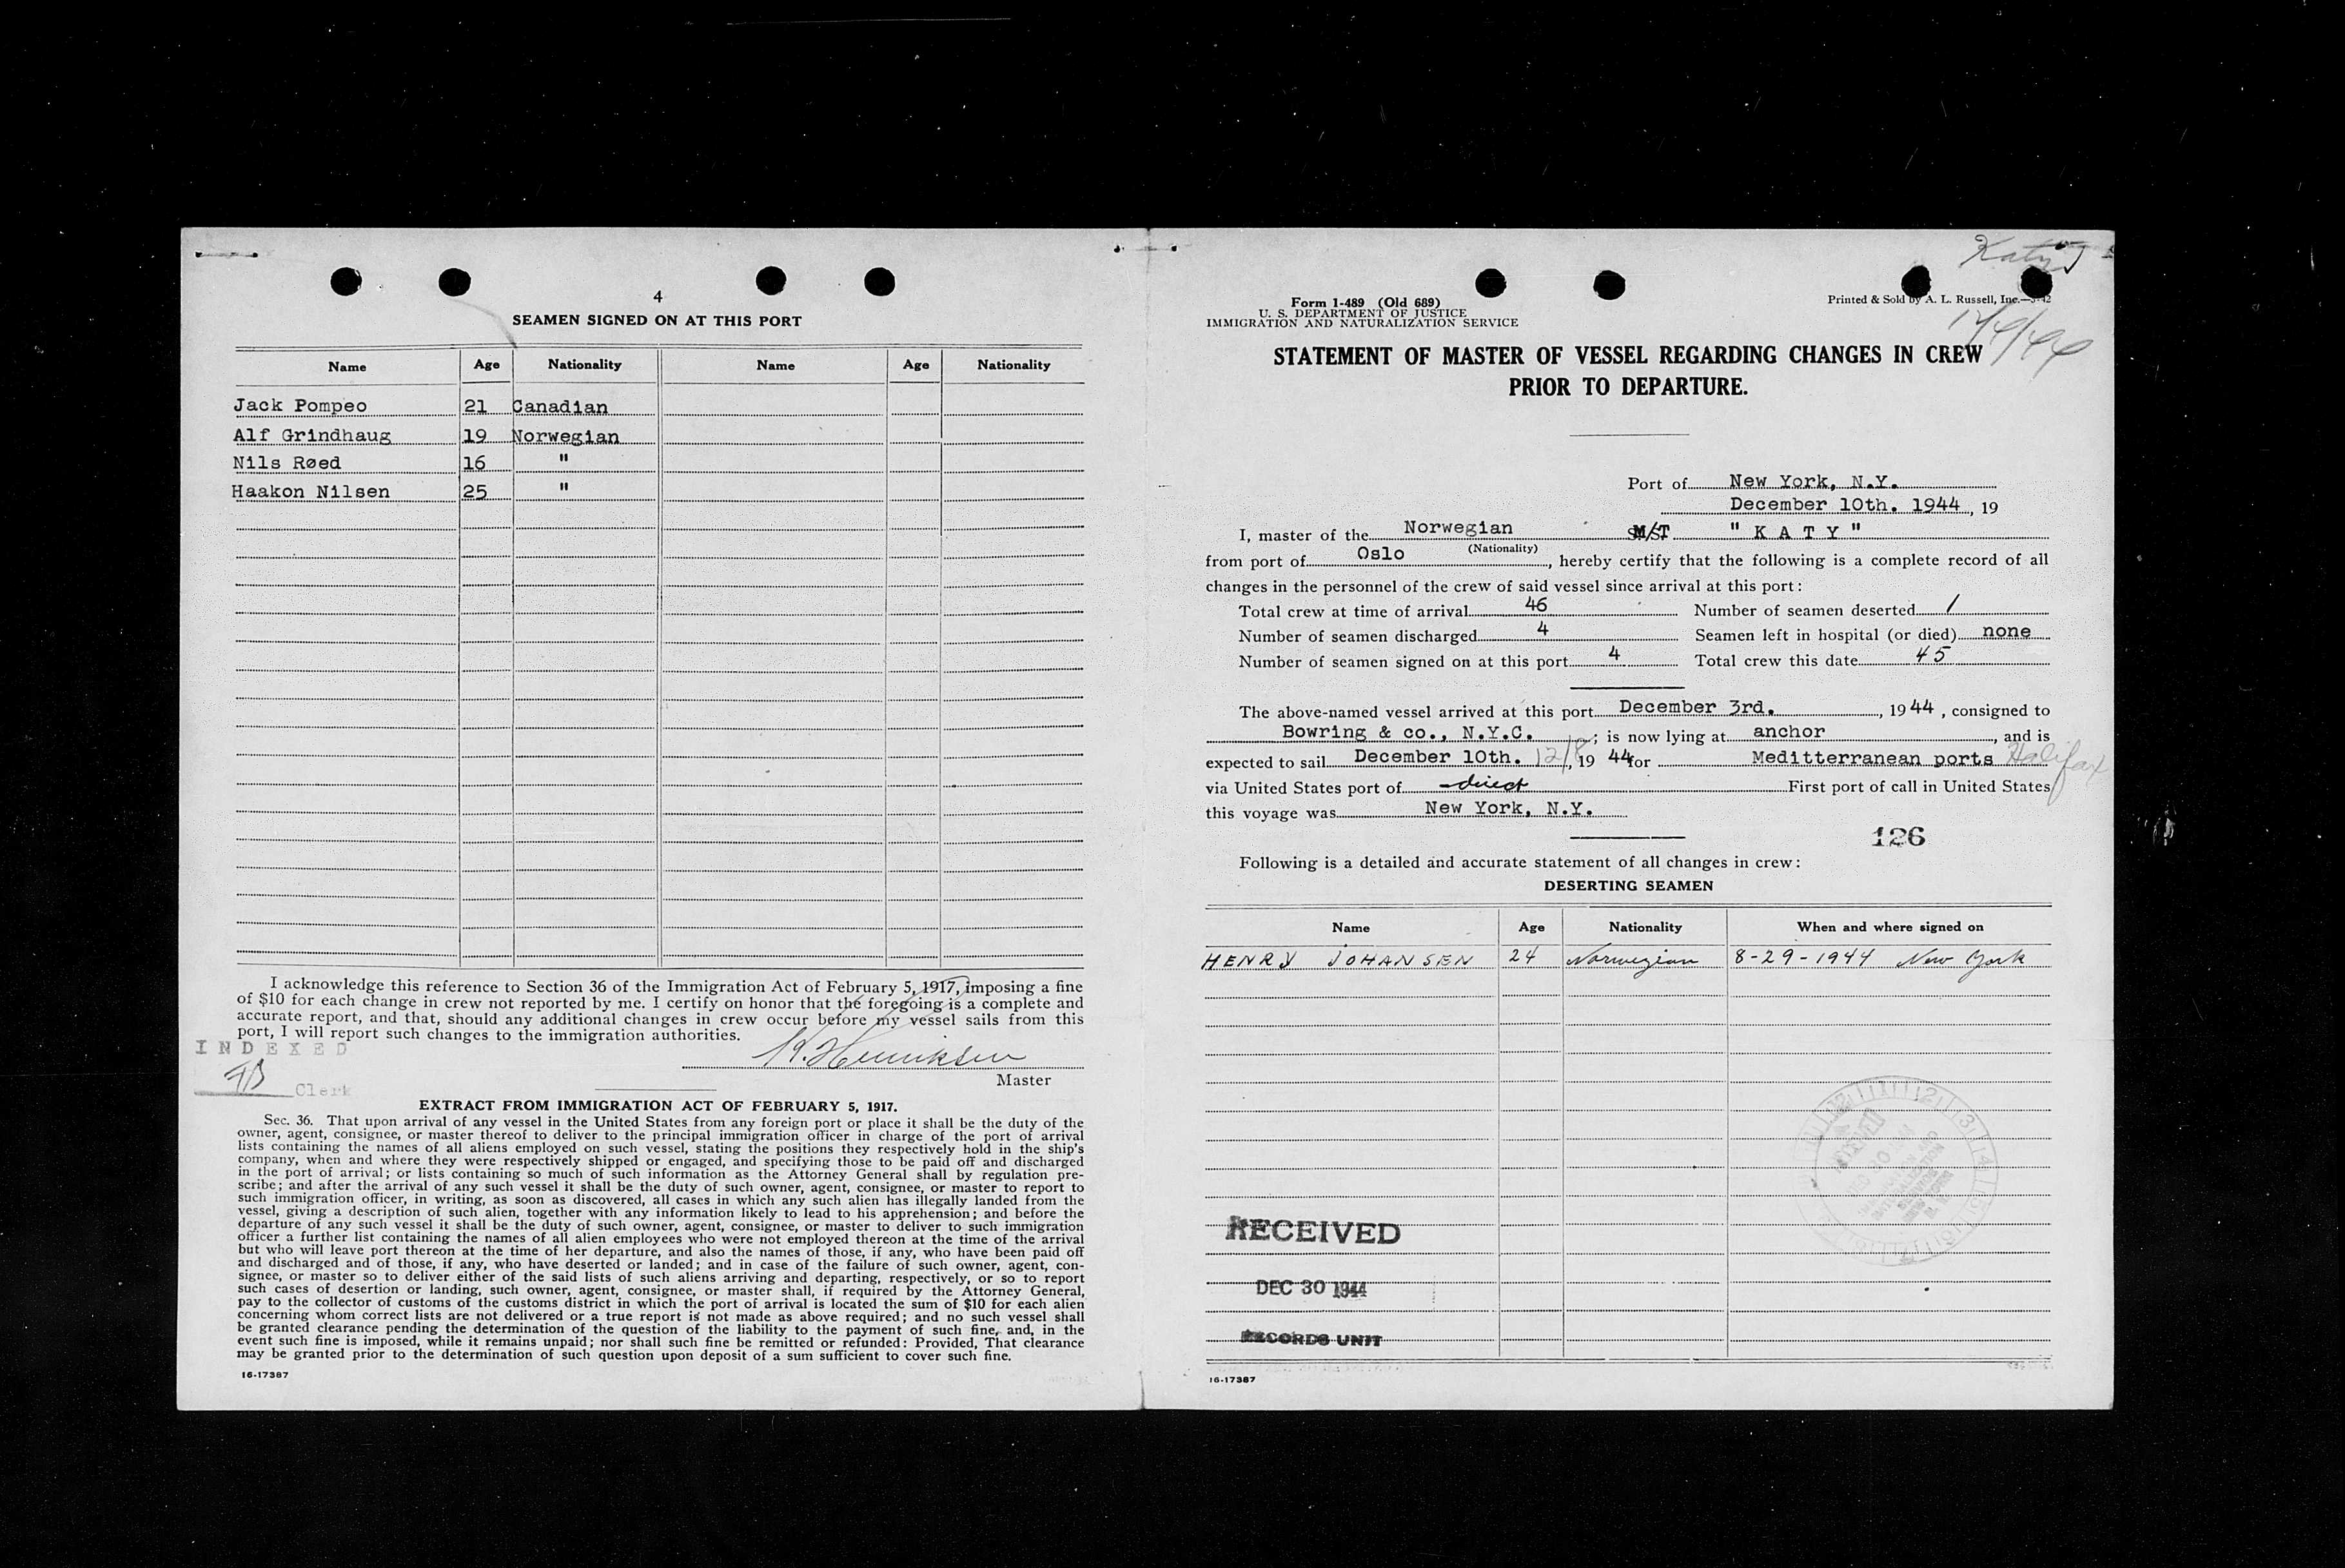 4
SEAMEN SIGNED ON AT THIS PORT
Name Age Nationality Name Age Nationality
Jack Pompeo 21 Canadian
Alf Grindhaug 19 Norwegian
Nils Røed 16 "
Haakon Nilsen 25 "
I acknowledge this reference to Section 36 of the Immigration Act of February 5, 1917, imposing a fine
of $10 for each change in crew not reported by me. I certify on honor that the foregoing is a complete and
accurate report, and that, should any additional changes in crew occur before my vessel sails from this
port, I will report such changes to the immigration authorities.
INDEXED
Henriksen
Clerk
Master
EXTRACT FROM IMMIGRATION ACT OF FEBRUARY 5, 1917.
Sec. 36. That upon arrival of any vessel in the United States from any foreign port or place it shall be the duty of the
owner, agent, consignee, or master thereof to deliver to the principal immigration officer in charge of the port of arrival
lists containing the names of all aliens employed on such vessel, stating the positions they respectively hold in the ship's
company, when and where they were respectively shipped or engaged, and specifying those to be paid off and discharged
in the port of arrival; or lists containing so much of such information as the Attorney General shall by regulation pre-
scribe; and after the arrival of any such vessel it shall be the duty of such owner, agent, consignee, or master to report to
such immigration officer, in writing, as soon as discovered, all cases in which any such alien has illegally landed from the
vessel, giving a description of such alien, together with any information likely to lead to his apprehension; and before the
departure of any such vessel it shall be the duty of such owner, agent, consignee, or master to deliver to such immigration
officer a further list containing the names of all alien employees who were not employed thereon at the time of the arrival
but who will leave port thereon at the time of her departure, and also the names of those, if any, who have been paid off
and discharged and of those, if any, who have deserted or landed; and in case of the failure of such owner, agent, con-
signee, or master so to deliver either of the said lists of such aliens arriving and departing, respectively, or so to report
such cases of desertion or landing, such owner, agent, consignee, or master shall, if required by the Attorney General,
pay to the collector of customs of the customs district in which the port of arrival is located the sum of $10 for each alien
concerning whom correct lists are not delivered or a true report is not made as above required; and no such vessel shall
be granted clearance pending the determination of the question of the liability to the payment of such fine, and, in the
event such fine is imposed, while it remains unpaid; nor shall such fine be remitted or refunded: Provided, That clearance
may be granted prior to the determination of such question upon deposit of a sum sufficient to cover such fine.
16-17387
Katy
Form 1-489 (Old 689)
U. S. DEPARTMENT OF JUSTICE
IMMIGRATION AND NATURALIZATION SERVICE
Printed & Sold by A. L. Russell, Inc.
STATEMENT OF MASTER OF VESSEL REGARDING CHANGES IN CREW
PRIOR TO DEPARTURE.
Port of New York, N.Y.
December 10th. 1944, 19
I, master of the Norwegian M/T "KATY"
(Nationality)
from port of Oslo, hereby certify that the following is a complete record of all
changes in the personnel of the crew of said vessel since arrival at this port:
Total crew at time of arrival 46 Number of seamen deserted 1
Number of seamen discharged 4 Seamen left in hospital (or died) none
Number of seamen signed on at this port 4 Total crew this date 45
The above-named vessel arrived at this port December 3rd., 1944, consigned to
Bowring & co., N.Y.C.; is now lying at anchor, and is
expected to sail December 10th. 12/8, 19 44 for Meditterranean ports Halifax
via United States port of direct First port of call in United States
this voyage was New York, N.Y.
126
Following is a detailed and accurate statement of all changes in crew:
DESERTING SEAMEN
Name Age Nationality When and where signed on
HENRY JOHANSEN 24 Norwegian 8-29-1944 New York
RECEIVED
DEC 30 1944
RECORDS UNIT
16-17387